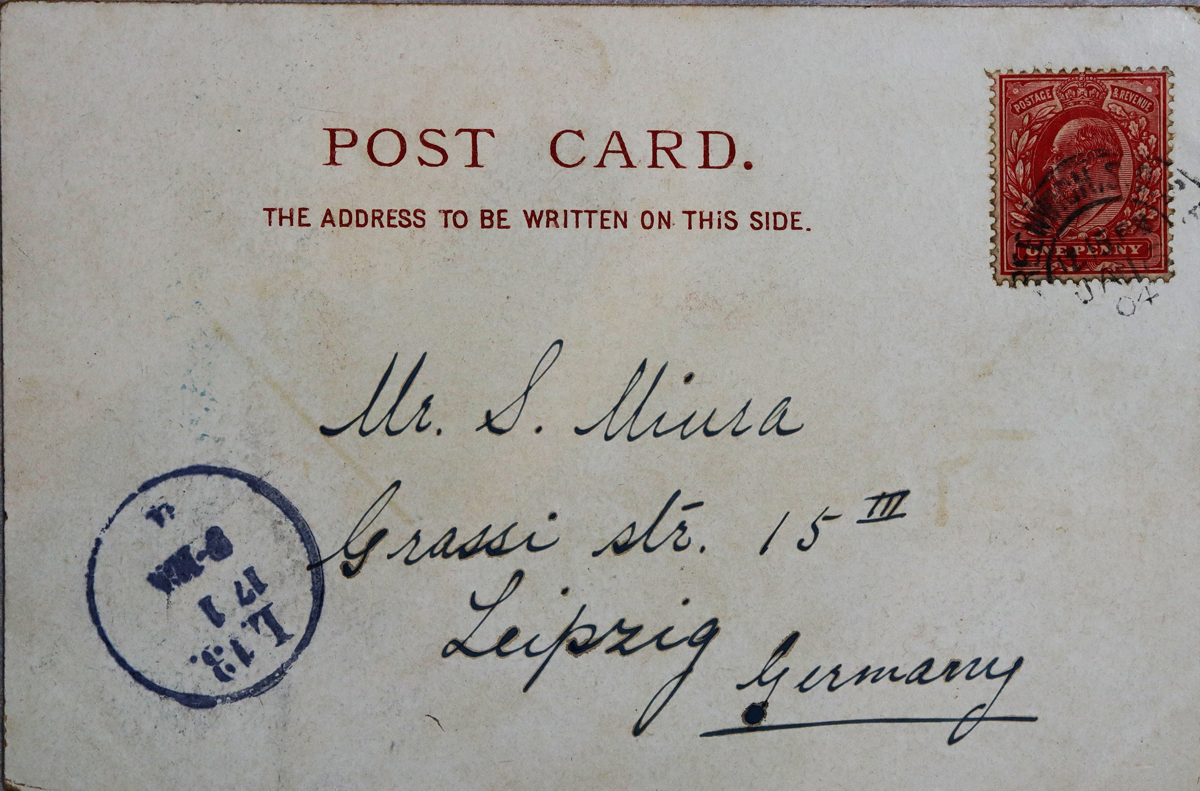 POST CARD.
THE ADDRESS TO BE WRITTEN ON THIS SIDE.
POSTAGE & REVENUE
ONE PENNY
JAN
04
Mr. S. Miura
Grassi str. 15 III
Leipzig
Germany
L. 13.
17 1